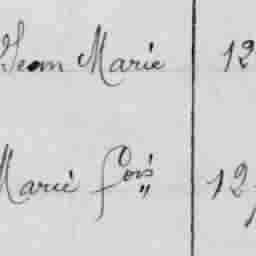 Jean Marie 12
Marie fois 12